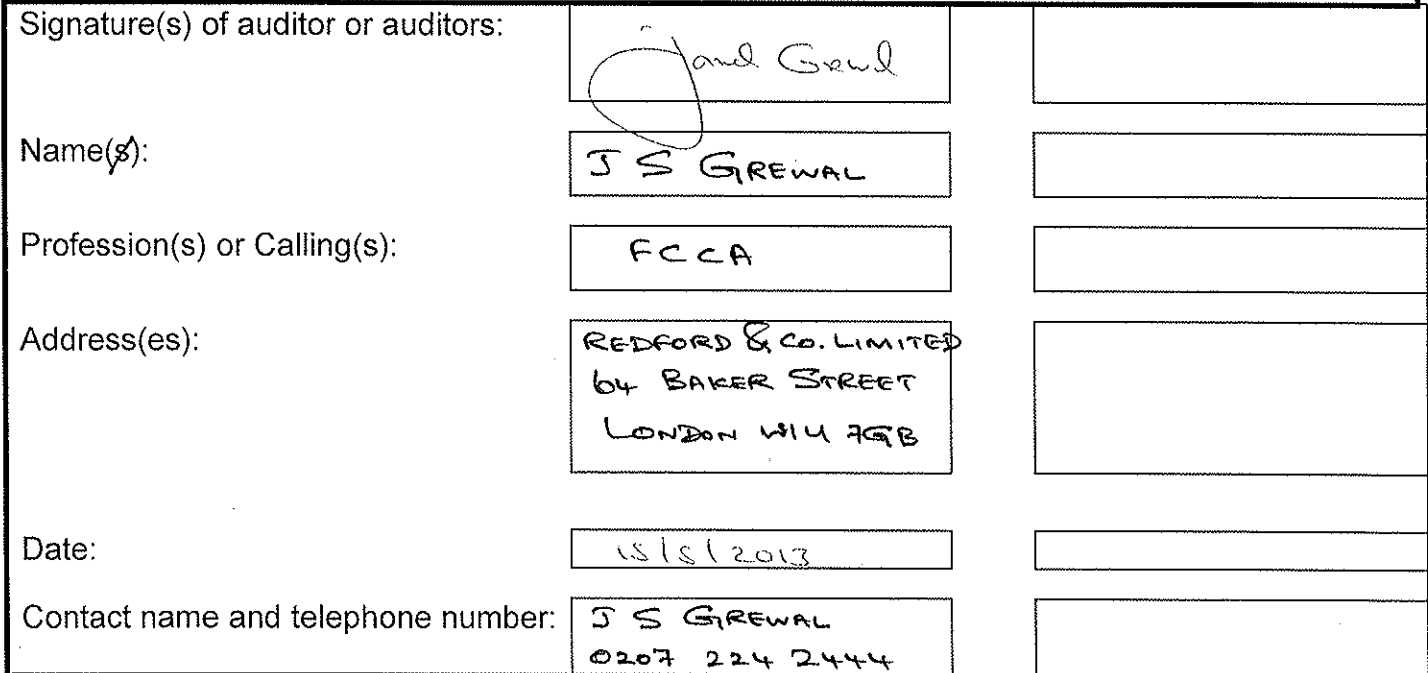 Signature(s) of auditor or auditors:
Grewal
Name(s):
J S GREWAL
Profession(s) or Calling(s):
FCCA
Address(es):
REDFORD & CO. LIMITED
64 BAKER STREET
LONDON W1U 7GB
Date:
15/5/2013
Contact name and telephone number:
J S GREWAL
0207 224 2444